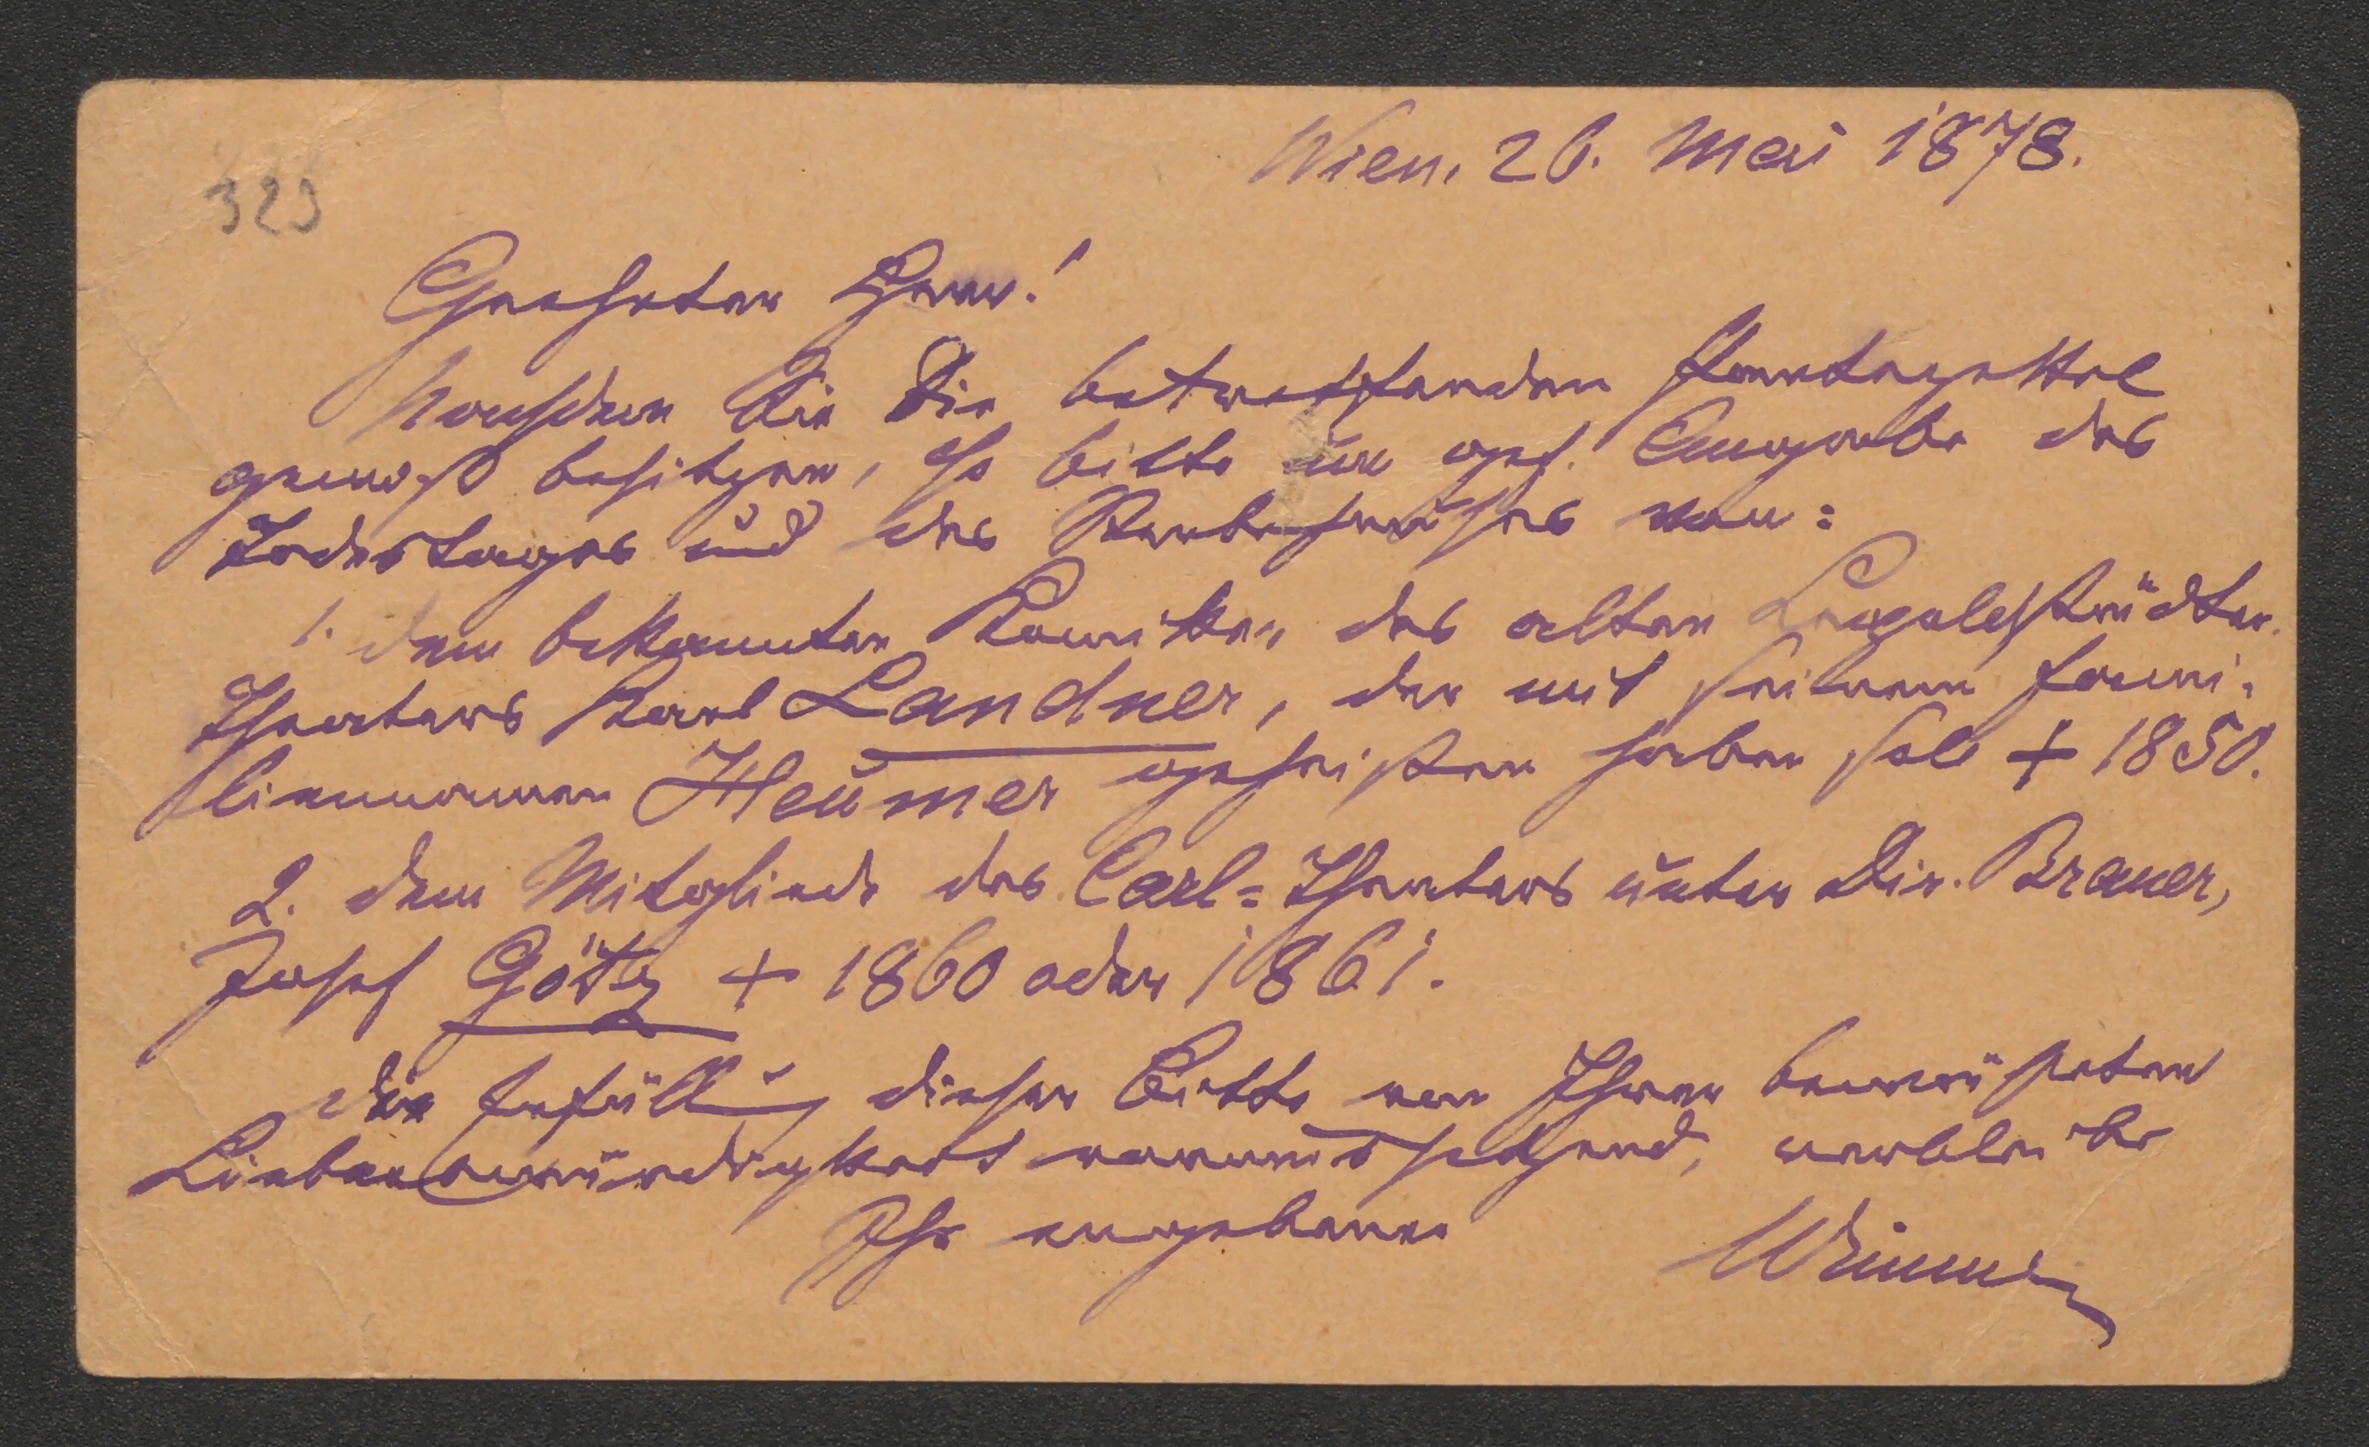 Wien, 26. Mai 1878.
323
Geehrter Herr!
Nachdem Sie die betreffenden Partezettel
gewiß besitzen, so bitte um gef. Angabe des
Todestages und des Sterbehauses von:
1. dem bekannten Komiker des alten Leopoldstädter
Theaters Karl Landner, der mit seinem Fami-
liennamen Heumer geheißen haben soll + 1850.
2. dem Mitgliede des Carl-Theaters unter Dir. Brauer,
Josef Götz + 1860 oder 1861.
Die Erfüllung dieser Bitte von Ihrer bewußten
Liebenswürdigkeit voraussetzend, verbleibe
Ihr ergebener
Wimmer